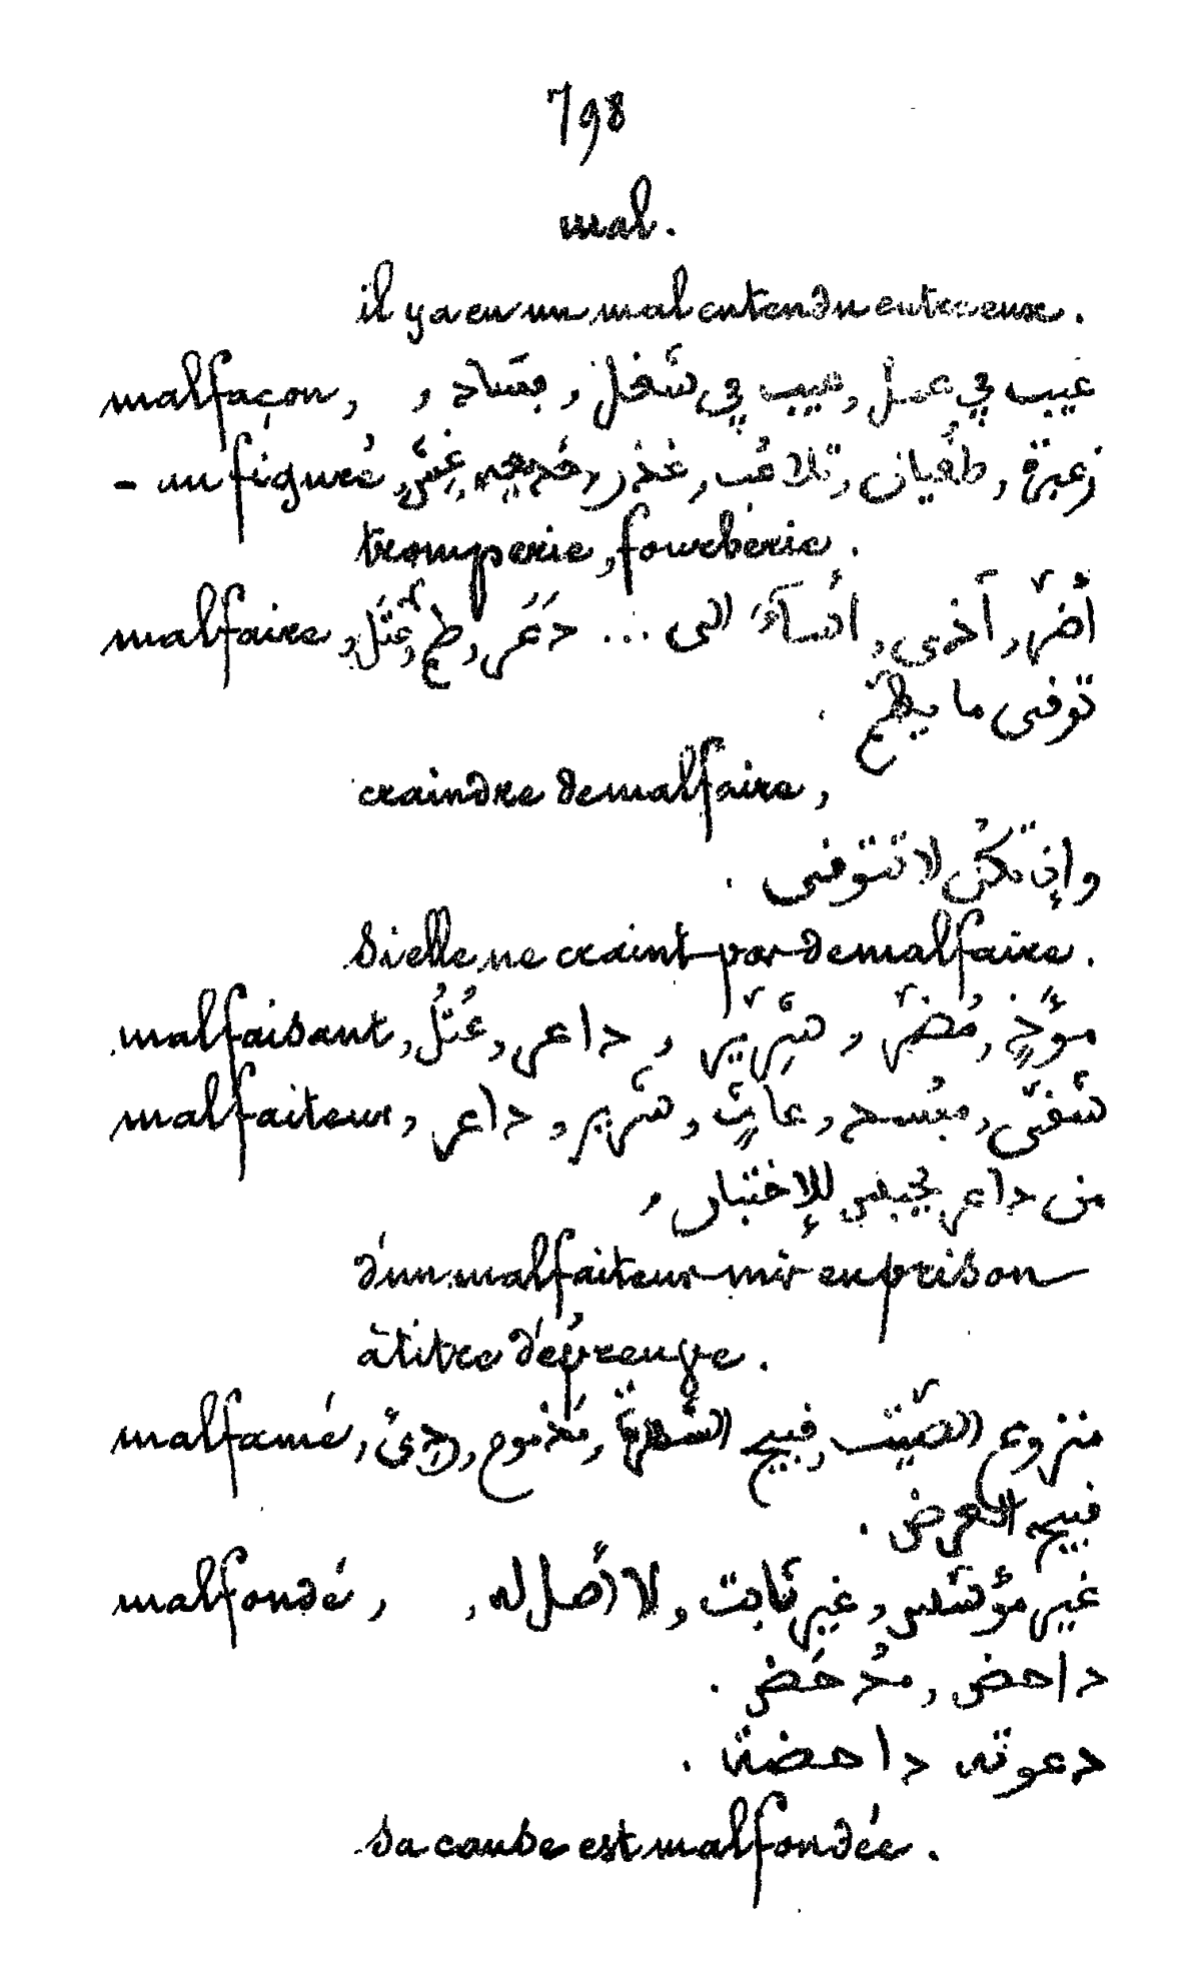 798
mal.
il y a eu un malentendu entre eux.
malfaçon, عيب في عمل, عيب في شغل, فساد,
- au figuré, زعبرة, طغيان, تلاعُب, غدر, خديعه, غِشّ
tromperie, fourberie.
malfaire, أضرّ, آذى, أسآءَ الى ... دَعَر,
توقى ما
craindre de malfaire,
وإن تكُن لا تتوقى.
Si elle ne craint pas de malfaire.
malfaisant, مؤذٍ, مُضرّ, شِرّير, داعر, عُتُلّ,
malfaiteur, شقىّ, مفسد, عاثٍ, شرير, داعر,
من داعر للإختبار,
d'un malfaiteur mis en prison
à titre d'épreuve.
malfamé, الصيّت, قبيح الشهرة, مذموم, ردىّ,
قبيح العرض.
malfondé, غير مؤسّس, غير ثابت, لا أصل له,
داحض, مُدحَض.
دعوته داحضة.
sa cause est malfondée.